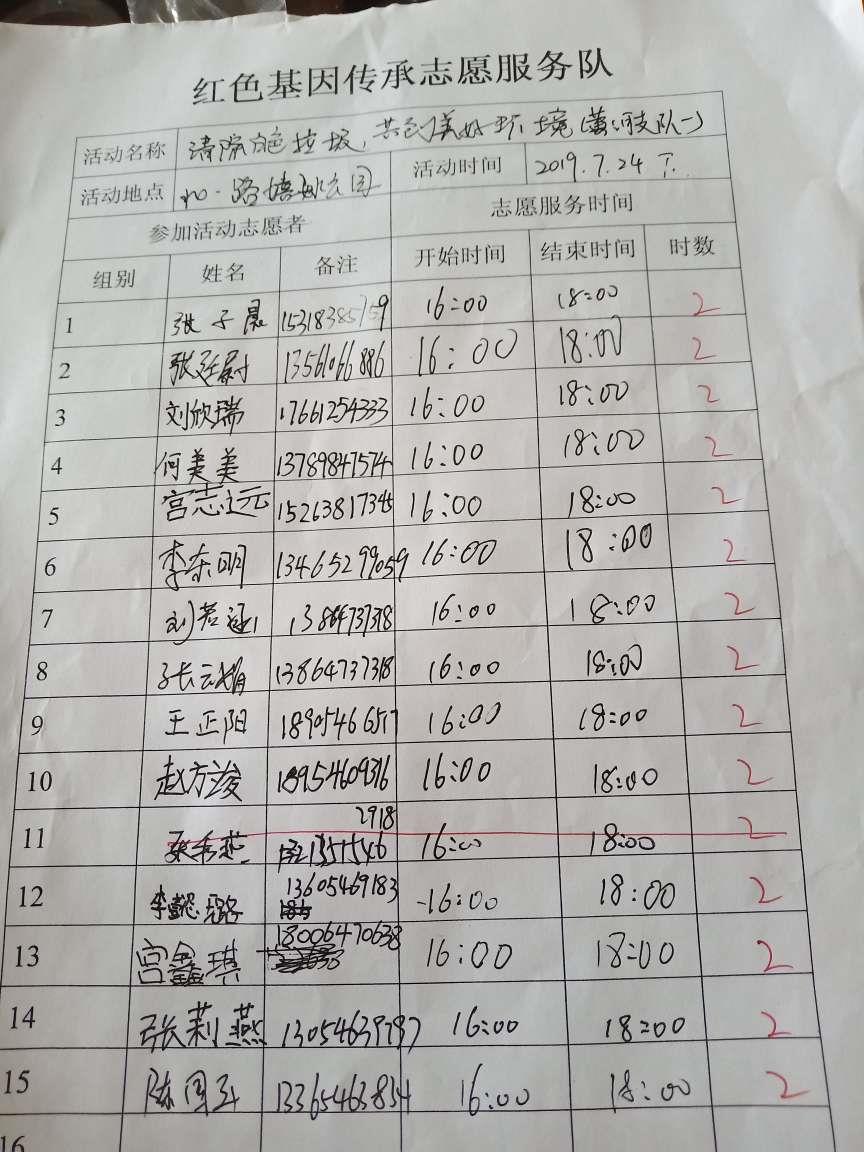 红色基因传承志愿服务队
活动名称 清除白色垃圾,共创美好环境(黄河支队一)
活动地点 路 公园 活动时间 2019.7.24 下.
参加活动志愿者 志愿服务时间
组别 姓名 备注 开始时间 结束时间 时数
1 张子晨 15318385759 16:00 18:00 2
2 张廷尉 13561066886 16:00 18:00 2
3 刘欣瑞 17661254333 16:00 18:00 2
4 何美美 13789847574 16:00 18:00 2
5 宫志远 15263817345 16:00 18:00 2
6 李东明 13465299059 16:00 18:00 2
7 刘若 13864737318 16:00 18:00 2
8 张云娟 13864737318 16:00 18:00 2
9 王正阳 18905466517 16:00 18:00 2
10 赵方浚 18954609316 16:00 18:00 2
11 张秀燕 2918 16:00 18:00 2
12 李懿璐 13605469183 16:00 18:00 2
13 宫鑫琪 18006470638 16:00 18:00 2
14 张莉燕 13054639797 16:00 18:00 2
15 陈国玉 13365463854 16:00 18:00 2
16